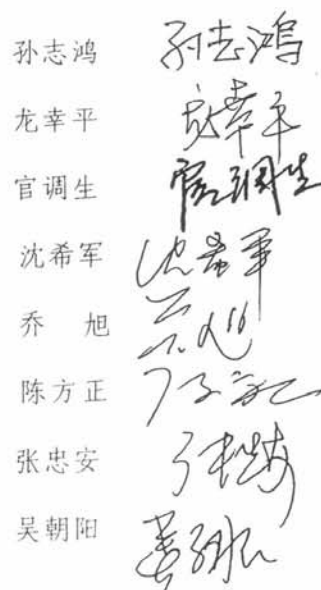 孙志鸿 孙志鸿
龙幸平 龙幸平
官调生 官调生
沈希军 沈希军
乔 旭
陈方正 陈方正
张忠安 张忠安
吴朝阳